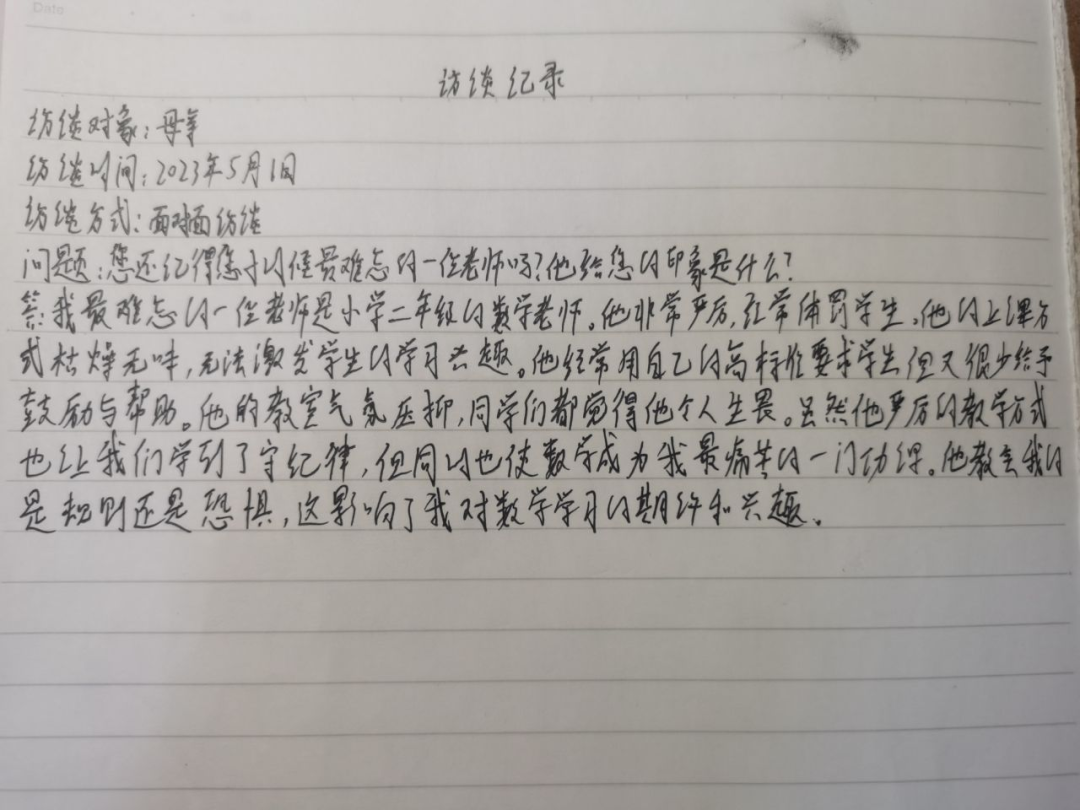 Date
访谈纪录
访谈对象：母亲
访谈时间：2023年5月1日
访谈方式：面对面访谈
问题：您还记得您小时候最难忘的一位老师吗？他给您的印象是什么？
答：我最难忘的一位老师是小学二年级的数学老师。他非常严厉，经常体罚学生。他的上课方
式枯燥无味，无法激发学生的学习兴趣。他经常用自己的高标准要求学生但又很少给予
鼓励与帮助。他的教室气氛压抑，同学们都觉得他个人生畏。虽然他严厉的教学方式
也让我们学到了守纪律，但同时也使数学成为我最痛苦的一门功课。他教会我的
是规则还是恐惧，这影响了我对数学学习的期待和兴趣。